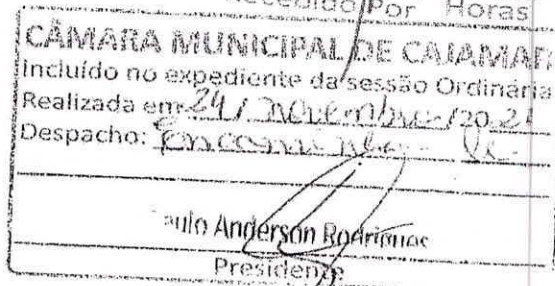 Recebido Por Horas
CÂMARA MUNICIPAL DE CAJAMAR
Incluído no expediente da sessão Ordinária
Realizada em: 24/ novembro /2021
Despacho: Encaminhe-se
Paulo Anderson Rodrigues
Presidente